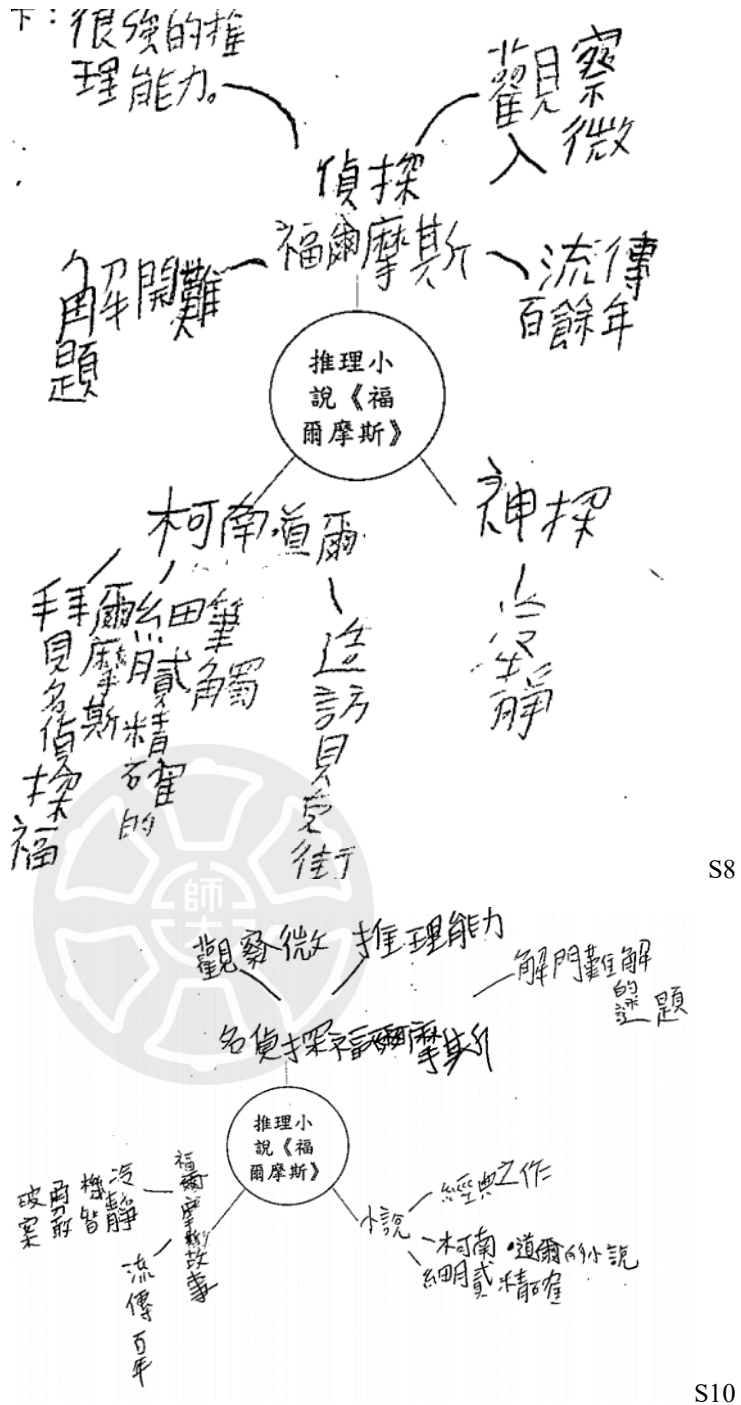 下：
很強的推
理能力。
觀察
入微
偵探
福爾摩斯
解開難
題
流傳
百餘年
推理小
說《福
爾摩斯》
柯南道爾
神探
拜見名偵探福
爾摩斯
細膩精確的
筆觸
造訪貝克街
冷靜
S8
師大
觀察微
推理能力
解門難解
的
謎題
名偵探福爾摩斯
推理小
說《福
爾摩斯》
福爾摩斯故事
冷靜
機智
勇敢
破案
流傳百年
小說
經典之作
柯南·道爾的小說
細膩精確
S10